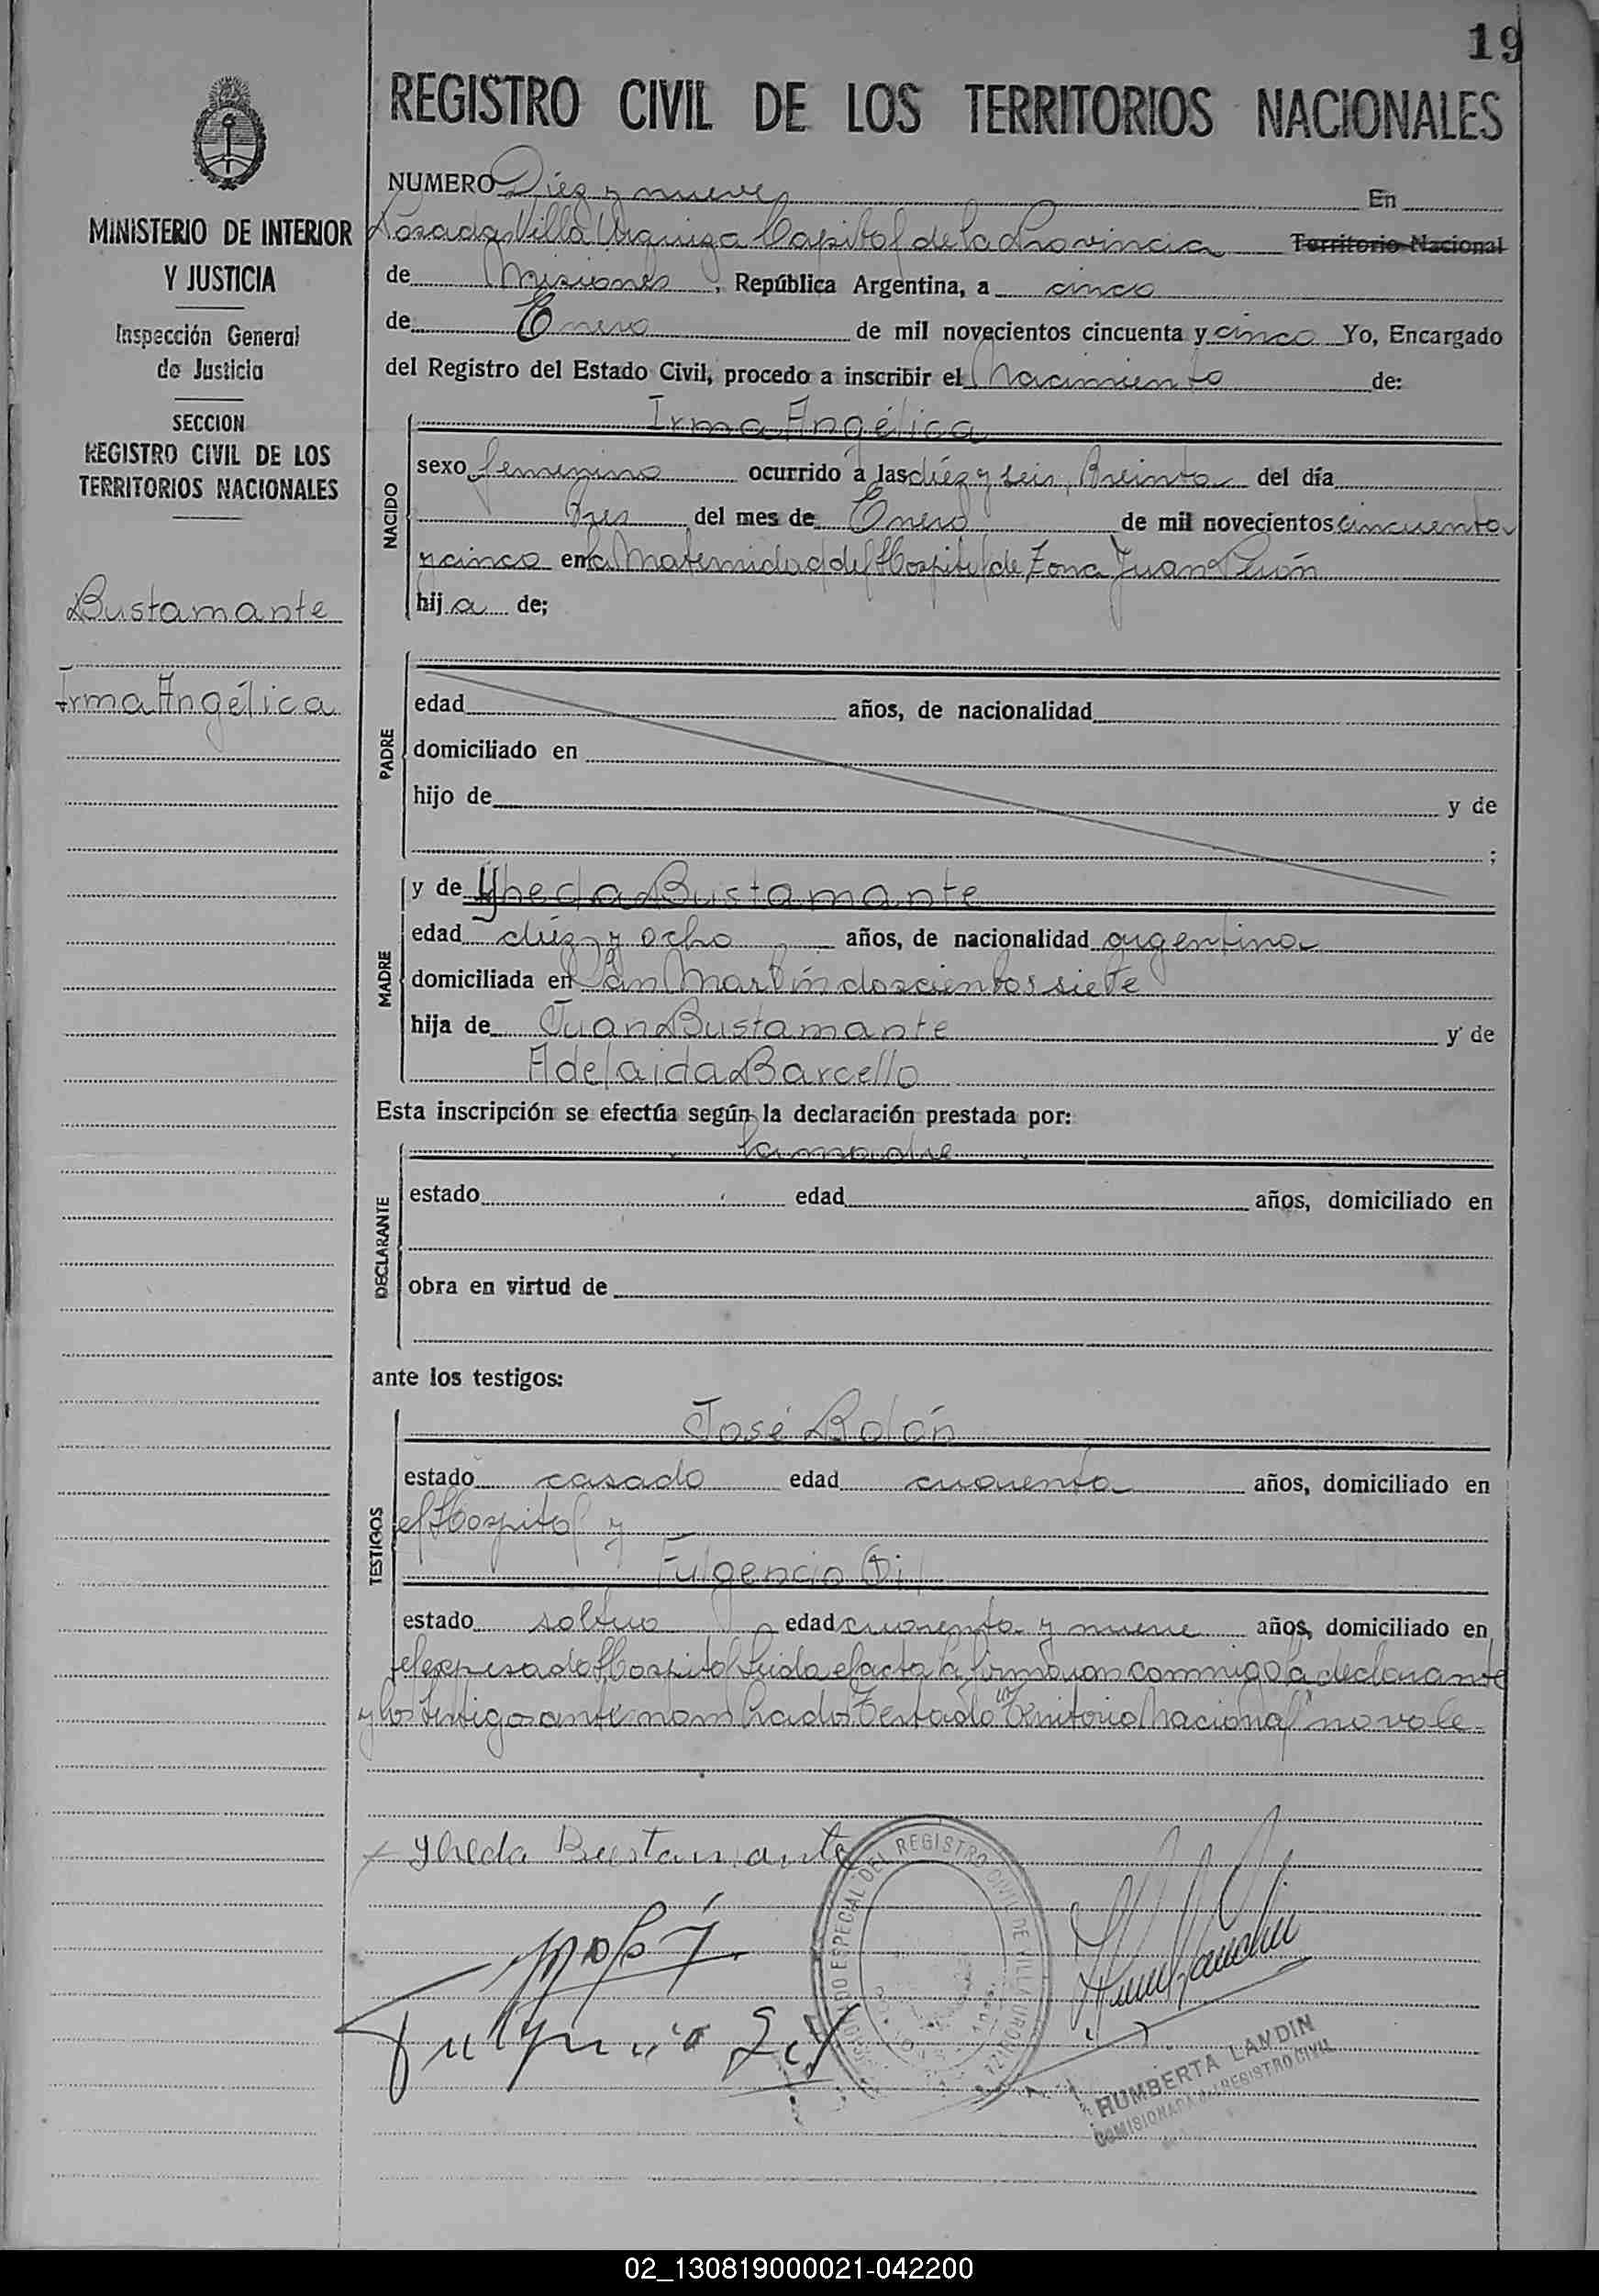 19
REGISTRO CIVIL DE LOS TERRITORIOS NACIONALES
MINISTERIO DE INTERIOR
Y JUSTICIA
Inspección General
de Justicia
SECCION
REGISTRO CIVIL DE LOS
TERRITORIOS NACIONALES
Bustamante
Irma Angélica
NUMERO Diez y nueve En
Posadas Villa Urquiza Capital de la Provincia Territorio Nacional
de Misiones, República Argentina, a cinco
de Enero de mil novecientos cincuenta y cinco Yo, Encargado
del Registro del Estado Civil, procedo a inscribir el Nacimiento de:
NACIDO
Irma Angélica
sexo femenino ocurrido a las diéz y seis, treinta del día
tres del mes de Enero de mil novecientos cincuenta
y cinco en la Maternidad del Hospital de Zona Juan Perón
hija de;
PADRE
edad años, de nacionalidad
domiciliado en
hijo de y de
;
MADRE
y de Yheda Bustamante
edad diéz y ocho años, de nacionalidad argentina
domiciliada en San Martín doscientos siete
hija de Juan Bustamante y de
Adelaida Barcello
Esta inscripción se efectúa según la declaración prestada por:
DECLARANTE
la madre
estado edad años, domiciliado en
obra en virtud de
ante los testigos:
TESTIGOS
José Bolón
estado casado edad cuarenta años, domiciliado en
el Hospital y
Fulgencio Gil
estado soltero edad cuarenta y nueve años, domiciliado en
el expresado Hospital Leida el acta la firmaron conmigo la declarante
y los testigos ante nombrados Testado "Territorio Nacional" no vale-
Yheda Bustamante
Fulgencio Gil
REGISTRO CIVIL DE VILLA URQUIZA
ESPECIAL DEL
HUMBERTA LANDIN
COMISIONADA del REGISTRO CIVIL
02_130819000021-042200